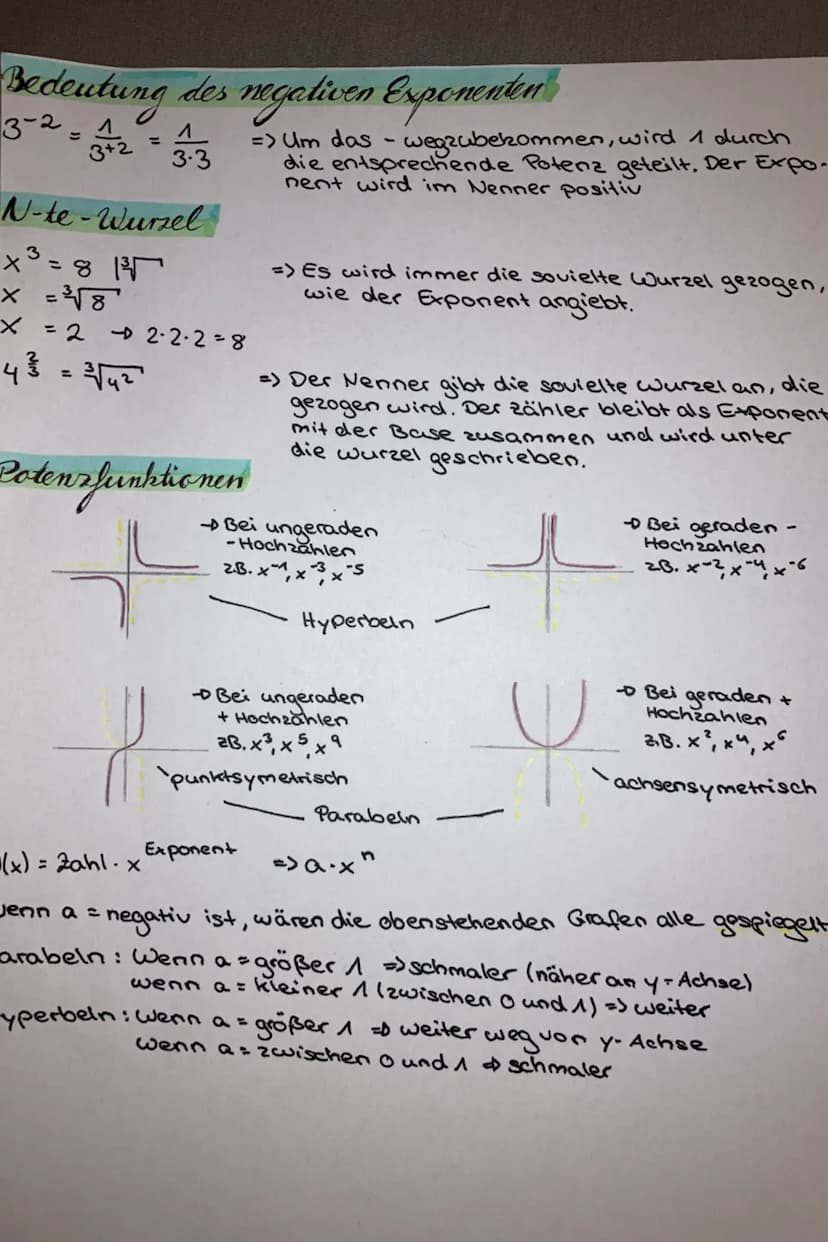 Bedeutung des negativen Exponenten
3⁻² = 1/3⁺² = 1/3·3 => Um das - wegzubekommen, wird 1 durch
die entsprechende Potenz geteilt. Der Expo-
nent wird im Nenner positiv
N-te-Wurzel
x³ = 8 |³√
x = ³√8
x = 2 → 2·2·2=8
=> Es wird immer die sovielte Wurzel gezogen,
wie der Exponent angiebt.
4^(2/3) = ³√4²
=> Der Nenner gibt die sovielte Wurzel an, die
gezogen wird. Der zähler bleibt als Exponent
mit der Base zusammen und wird unter
die wurzel geschrieben.
Potenzfunktionen
→ Bei ungeraden
-Hochzahlen
zB. x⁻¹, x⁻³, x⁻⁵
→ Bei geraden -
Hochzahlen
zB. x⁻², x⁻⁴, x⁻⁶
Hyperbeln
→ Bei ungeraden
+ Hochzahlen
zB. x³, x⁵, x⁹
punktsymetrisch
→ Bei geraden +
Hochzahlen
z.B. x², x⁴, x⁶
achsensymetrisch
Parabeln
(x) = Zahl · x^Exponent => a·xⁿ
enn a = negativ ist, wären die obenstehenden Grafen alle gespiegelt
arabeln: Wenn a = größer 1 => schmaler (näher an y-Achse)
wenn a = kleiner 1 (zwischen 0 und 1) => weiter
yperbeln: Wenn a = größer 1 => weiter weg von y-Achse
wenn a = zwischen 0 und 1 => schmaler